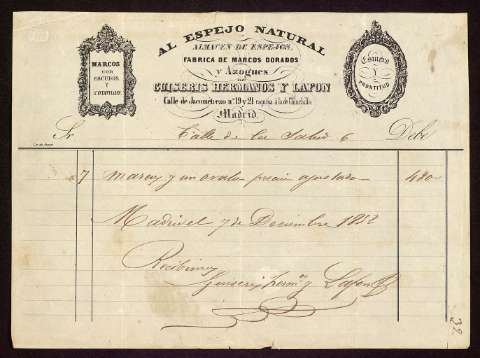 AL ESPEJO NATURAL
ALMACEN DE ESPEJOS,
FABRICA DE MARCOS DORADOS
y Azogues
DE
GUISERIS HERMANOS Y LAFON
Calle de Jacometrezo nº 19 y 21 esquina á la de Chinchilla
Madrid.
MARCOS
CON
ESCUDOS
Y
Esmero
Y
PRONTITUD
Sr. Calle de la Salud 6 Debe
7 marcos y un ovalo precio ajustado 480
Madrid 7 de Diciembre 1852
Recibimos
Guiseris herm.s y Lafon
32